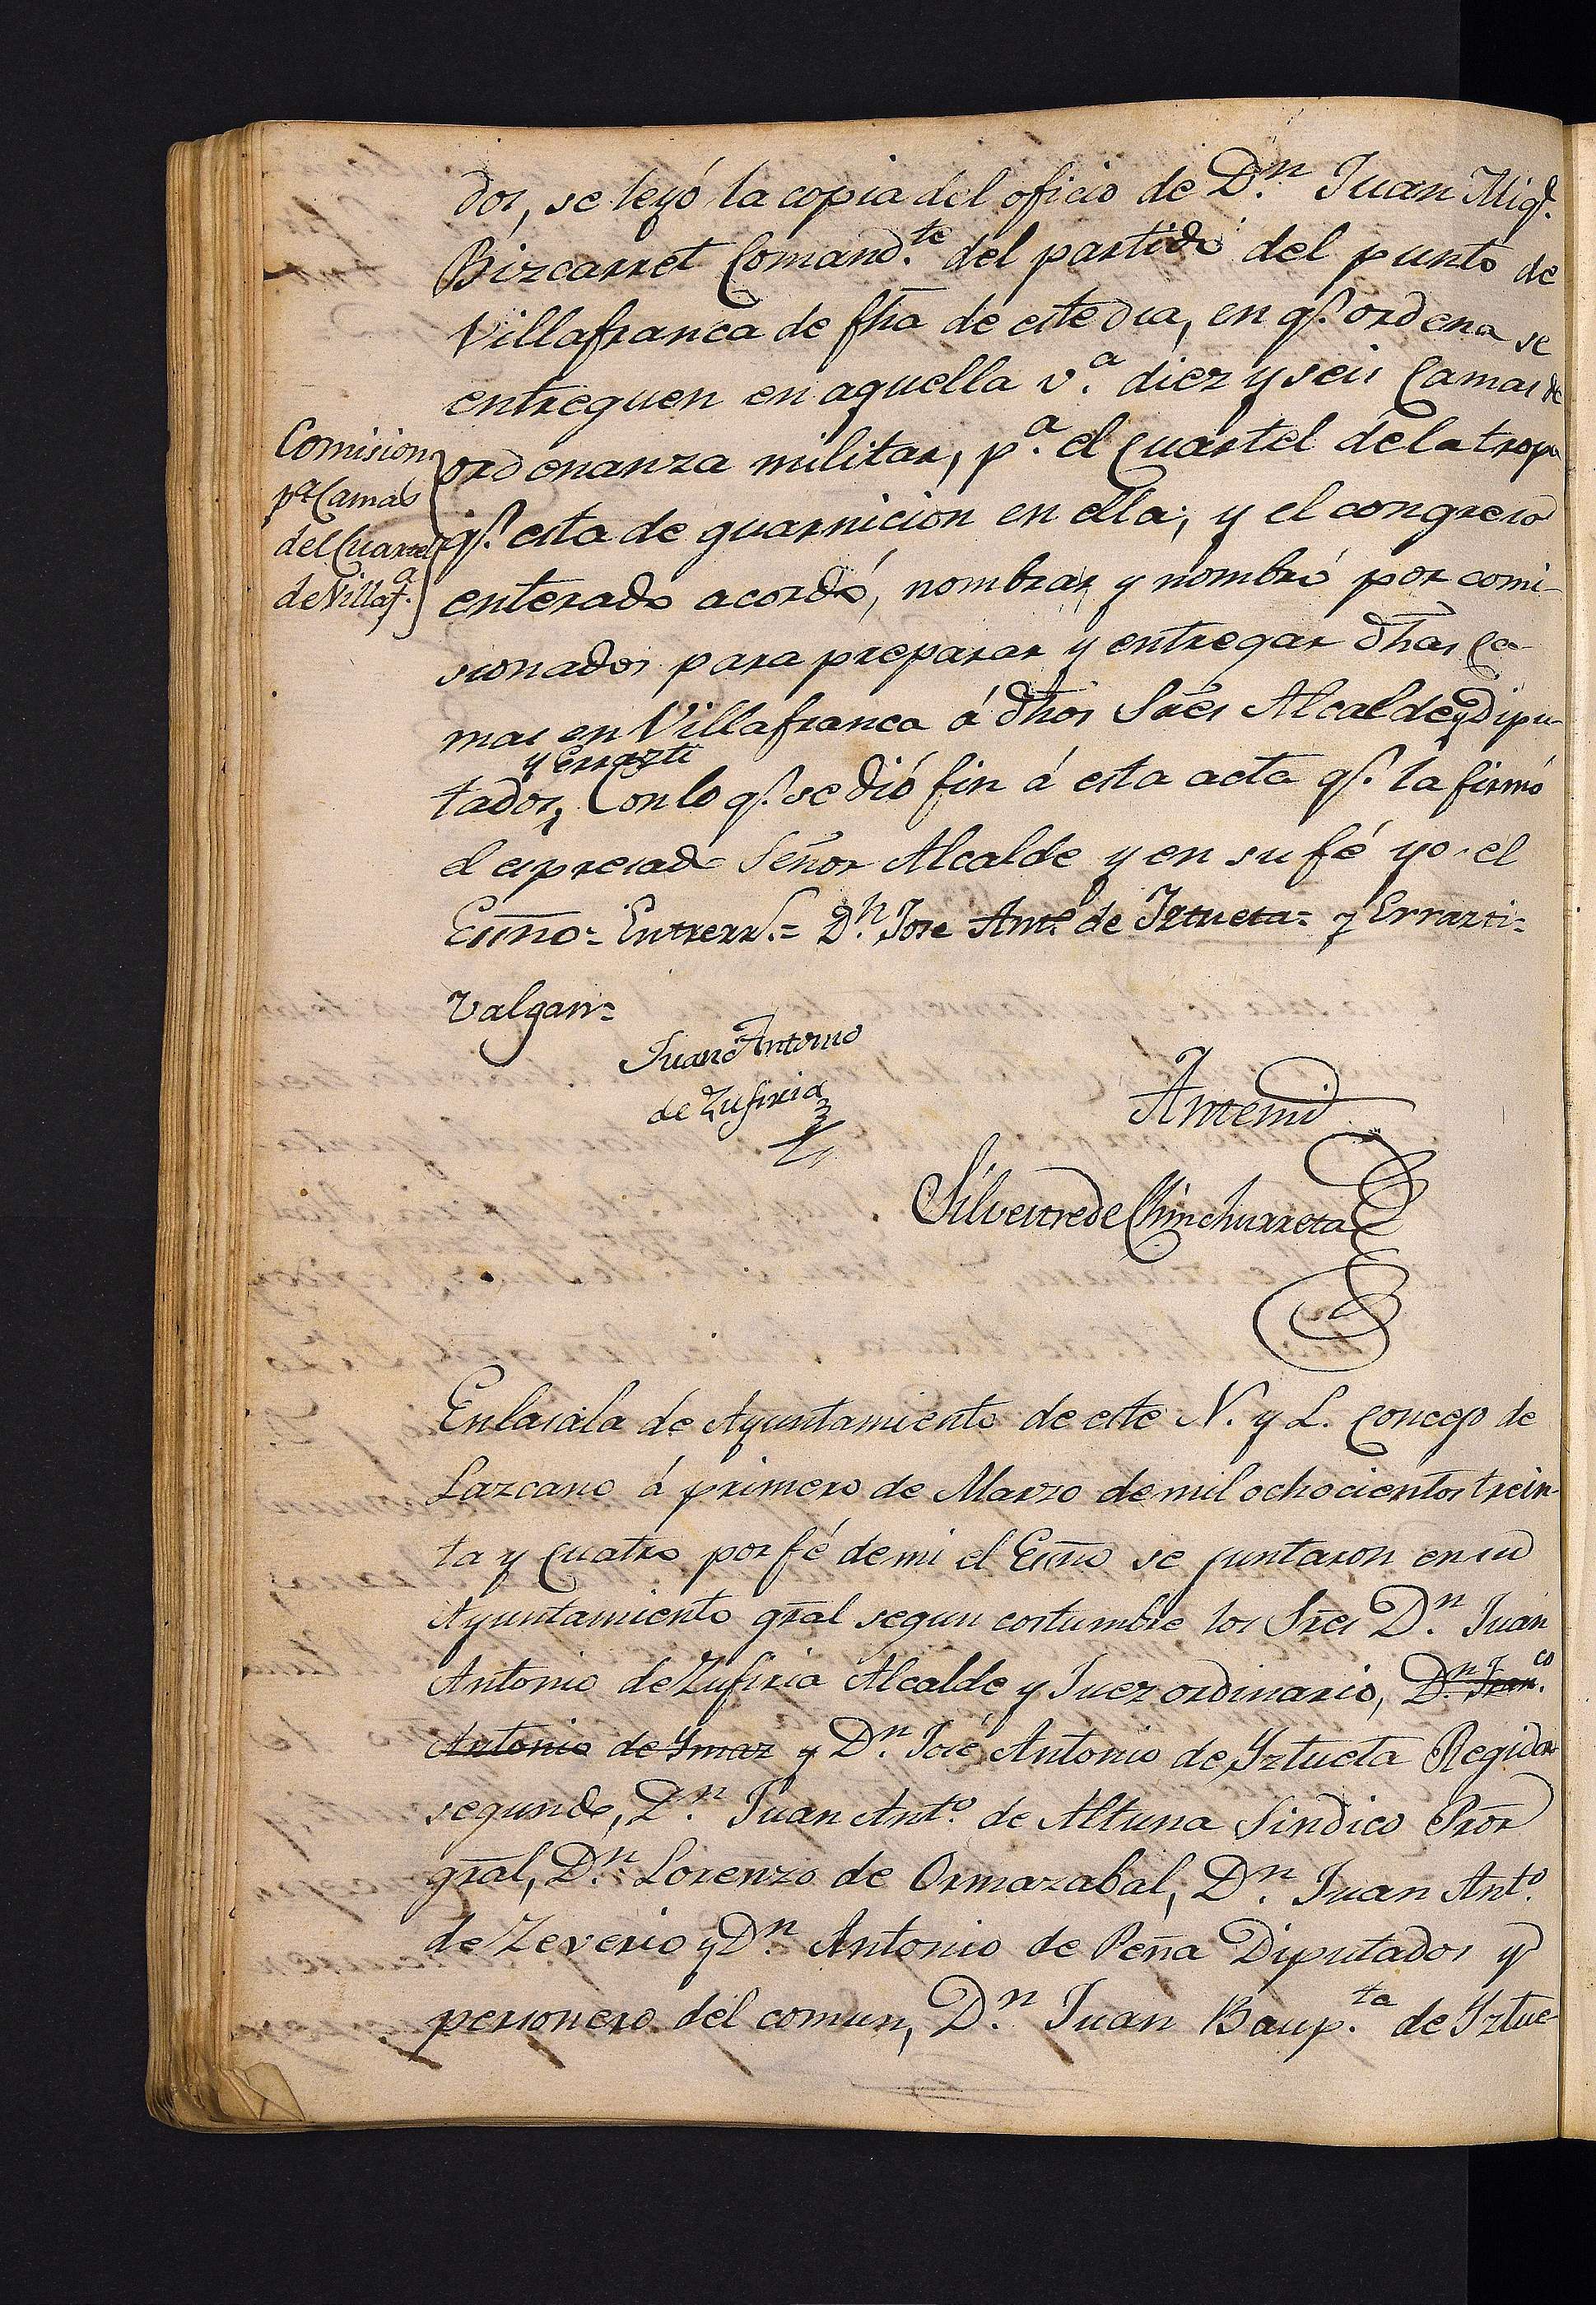 dos, se leyó la copia del oficio de D.n Juan Mig.l
Bizcarret Comand.te del partido del punto de
Villafranca de fha de este dia, en q.e ordena se
entreguen en aquella v.a diez y seis Camas de
Comision
p.a Camas
del Cuartel
de Villaf.a
ordenanza militar, p.a el Cuartel de la tropa
q.e esta de guarnicion en ella; y el congreso
enterado acordó, nombrar y nombró por comi-
sionados para preparar y entregar dhas Ca-
mas en Villafranca á dhos Sres Alcalde y Dipu-
y Errazti
tados, Con lo q.e se dió fin á esta acta q.e la firmó
el espresado Señor Alcalde y en su fé yo el
Essño= Entrerr.s= D.n Jose Ant.o de Iztueta= y Errazti=
Valgan=
Juan Antonio
de Zufiria
Antemi
Silvestre de Chinchurreta
En la sala de Ayuntamiento de este N. y L. Concejo de
Lazcano á primero de Marzo de mil ochocientos trein-
ta y Cuatro por fé de mi el Essño se juntaron en su
Ayuntamiento gral segun costumbre los Sres D.n Juan
Antonio de Zufiria Alcalde y Juez ordinario, D.n Fran.co
Antonio de Ymaz y D.n José Antonio de Yztueta Regidor
segundo, D.n Juan Ant.o de Altuna Sindico Pror
gral, D.n Lorenzo de Ormazabal, D.n Juan Ant.o
de Zeverio y D.n Antonio de Peña Diputados y
personero del comun, D.n Juan Baup.ta de Yztue-